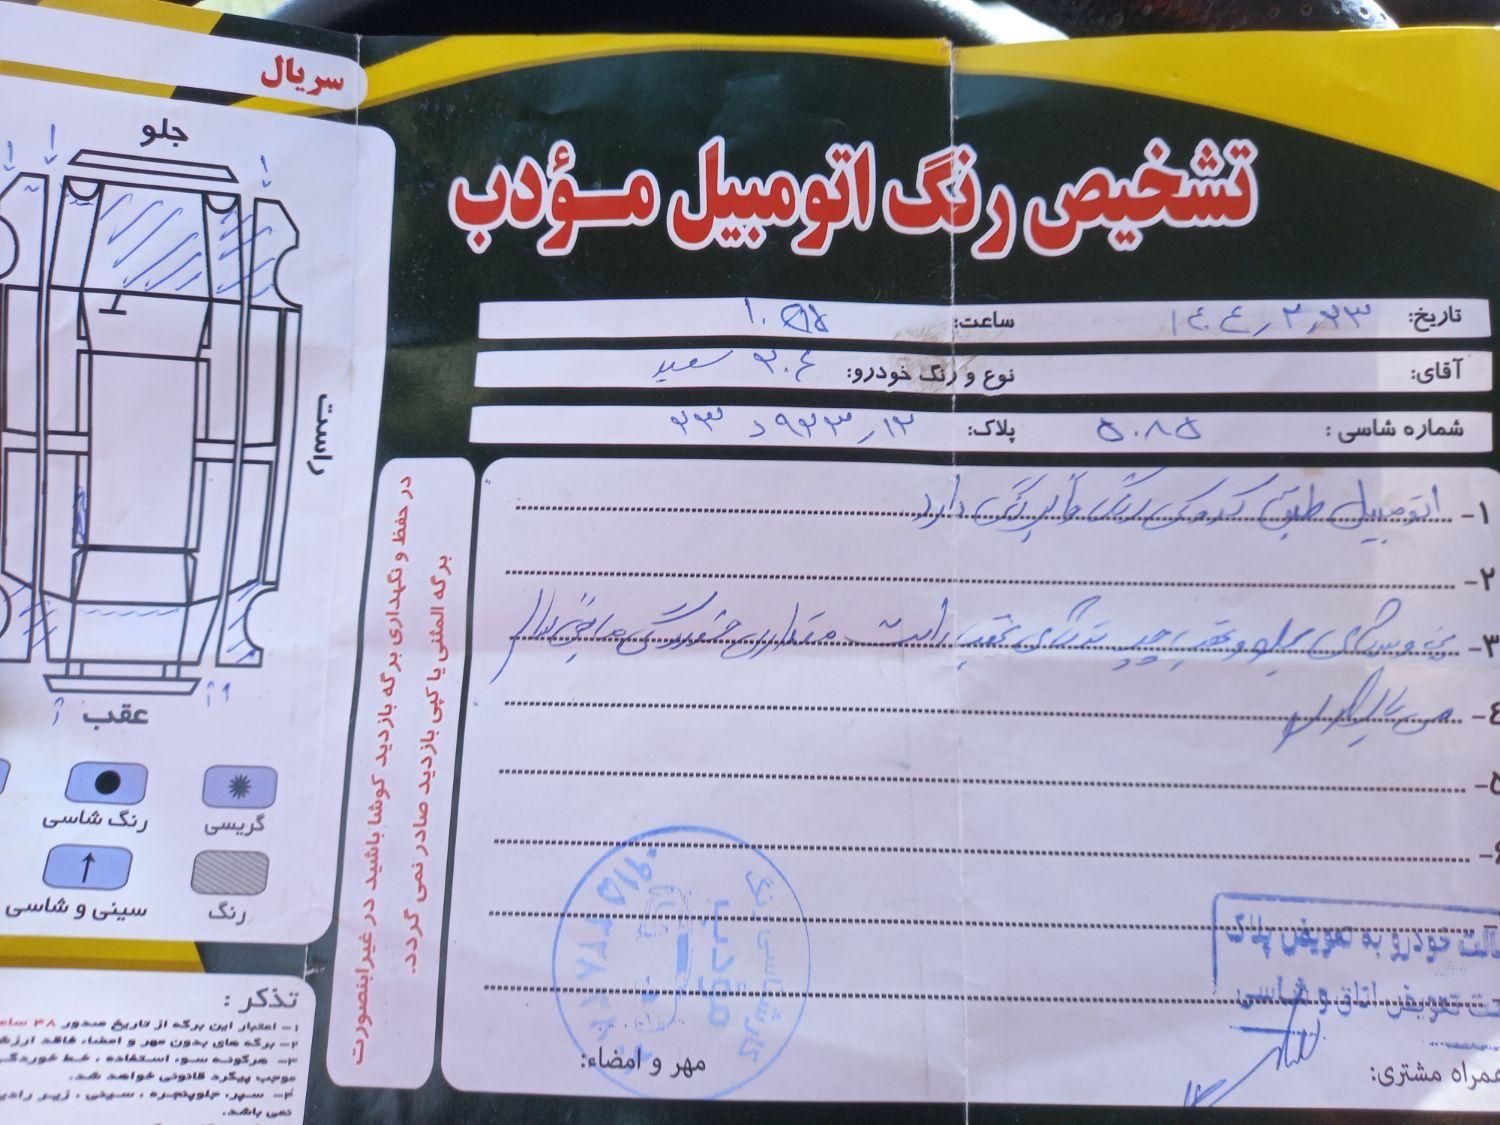 سریال
تشخیص رنگ اتومبیل مؤدب
تاریخ: ۱۴۰۴٫۲٫۲۳
ساعت:
آقای:
نوع و رنگ خودرو: ۲۰۶ سفید
شماره شاسی: ۵۰۸۵
پلاک: ۱۲٫۹۳۳د۲۳
۱- اتومبیل طبق کروکی رنگ دارد
۲-
۳- جلو و عقب راست مقداری خوردگی
۴- می باشد
۵-
۶-
مهر و امضاء:
همراه مشتری:
کارشناسی رنگ
مؤدب
خودرو به تعویض پلاک
تعویض اتاق و شاسی
در حفظ و نگهداری برگه بازدید کوشا باشید در غیراینصورت
برگه المثنی یا کپی بازدید صادر نمی گردد.
جلو
راست
عقب
گریسی
رنگ شاسی
رنگ
سینی و شاسی
تذکر:
۱- اعتبار این برگه از تاریخ صدور ۴۸
۲- برگه های بدون مهر و امضاء فاقد
۳- هرگونه سوء استفاده، خط خوردگی
موجب پیگرد قانونی خواهد شد.
۴- سپر، جلوپنجره، سینی، زیر
نمی باشد.